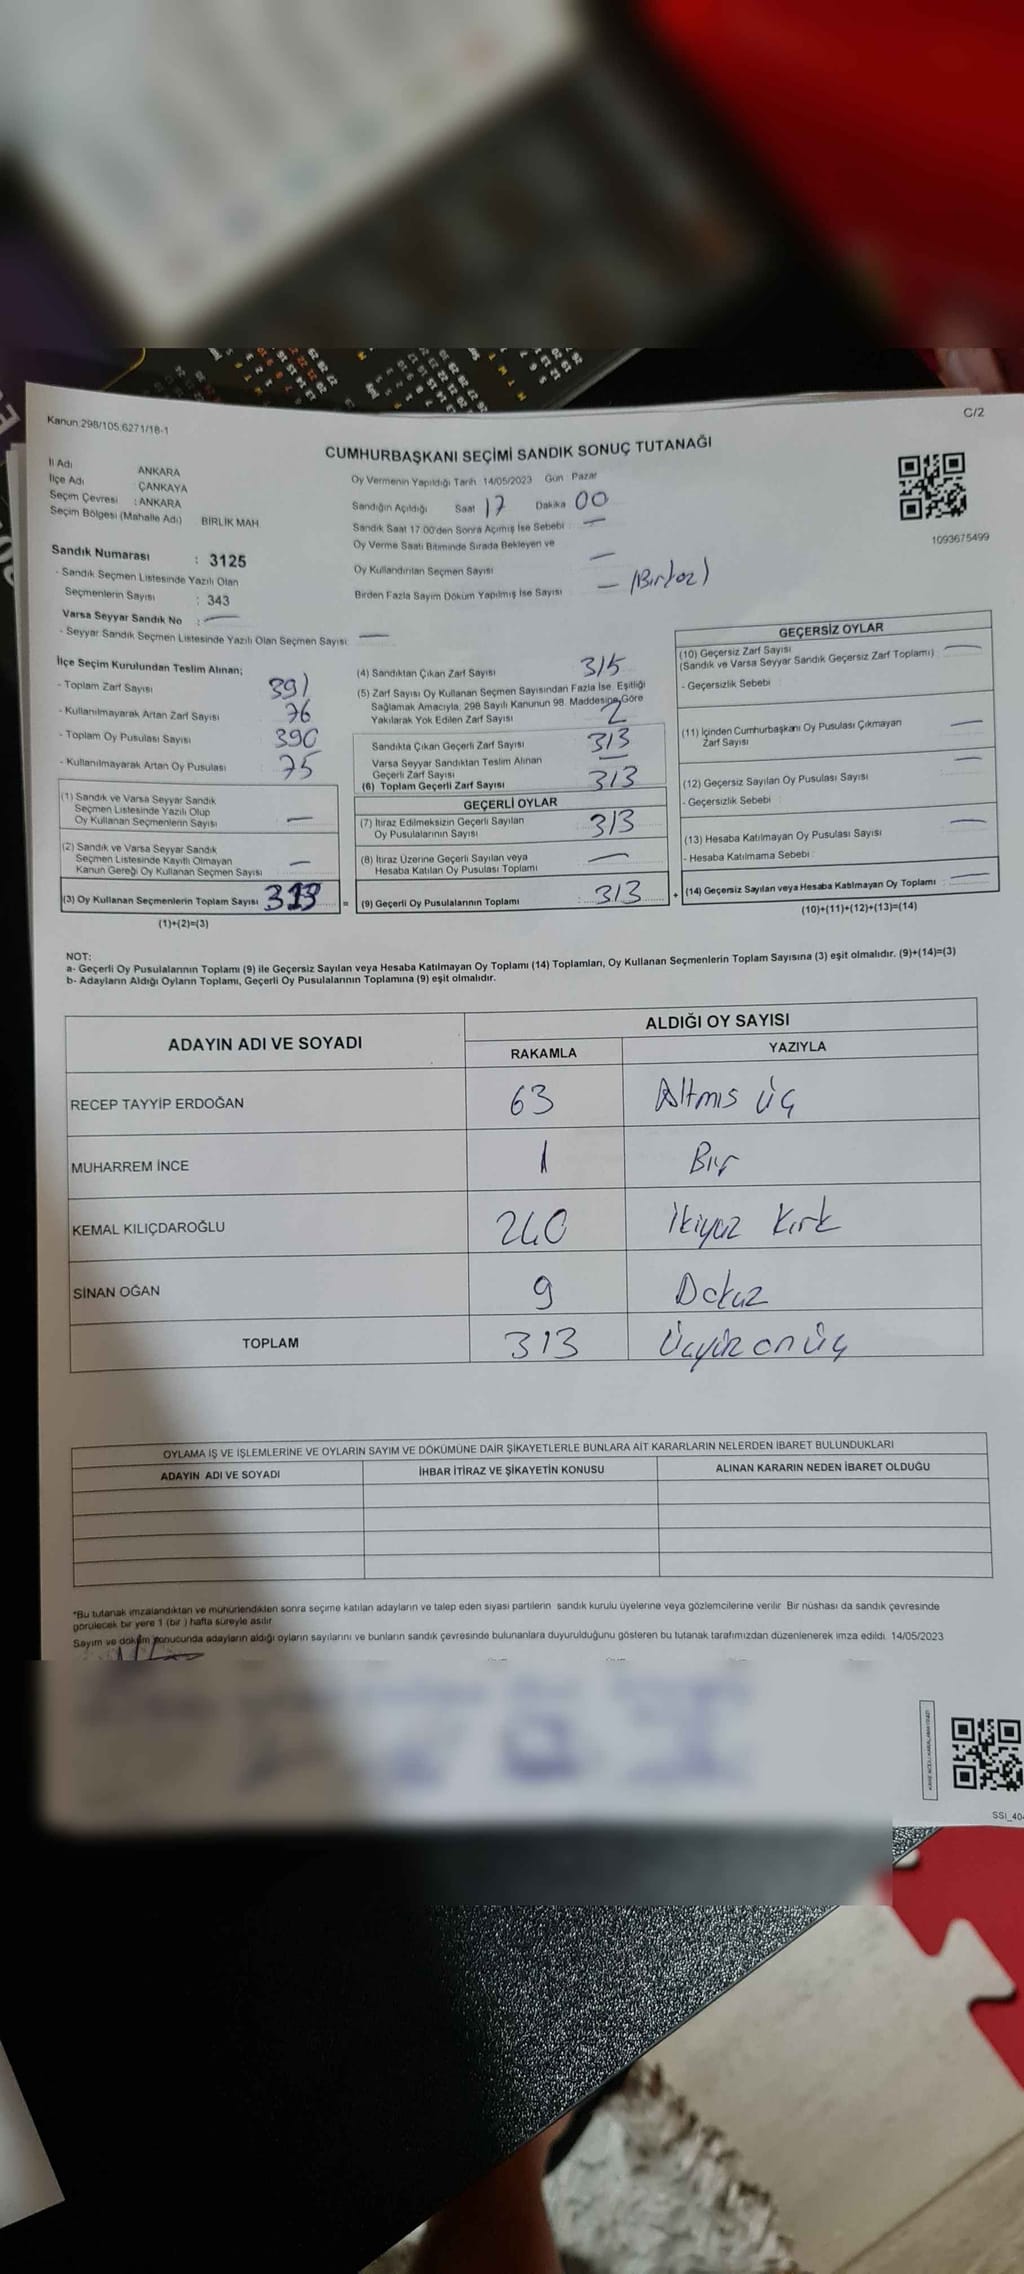 Kanun:298/105,6271/18-1
C/2
CUMHURBAŞKANI SEÇİMİ SANDIK SONUÇ TUTANAĞI
İl Adı ANKARA
İlçe Adı : ÇANKAYA
Seçim Çevresi : ANKARA
Seçim Bölgesi (Mahalle Adı) BİRLİK MAH.
Oy Vermenin Yapıldığı Tarih 14/05/2023 Gün Pazar
Sandığın Açıldığı Saat 17 Dakika 00
Sandık Saat 17.00'den Sonra Açılmış İse Sebebi : —
Oy Verme Saati Bitiminde Sırada Bekleyen ve
Oy Kullandırılan Seçmen Sayısı —
Birden Fazla Sayım Döküm Yapılmış İse Sayısı —
1093675499
Sandık Numarası : 3125
- Sandık Seçmen Listesinde Yazılı Olan
Seçmenlerin Sayısı : 343
Varsa Seyyar Sandık No : —
- Seyyar Sandık Seçmen Listesinde Yazılı Olan Seçmen Sayısı: —
İlçe Seçim Kurulundan Teslim Alınan;
- Toplam Zarf Sayısı 391
- Kullanılmayarak Artan Zarf Sayısı 76
- Toplam Oy Pusulası Sayısı 390
- Kullanılmayarak Artan Oy Pusulası 75
(1) Sandık ve Varsa Seyyar Sandık
Seçmen Listesinde Yazılı Olup
Oy Kullanan Seçmenlerin Sayısı —
(2) Sandık ve Varsa Seyyar Sandık
Seçmen Listesinde Kayıtlı Olmayan
Kanun Gereği Oy Kullanan Seçmen Sayısı —
(3) Oy Kullanan Seçmenlerin Toplam Sayısı 313 =
(1)+(2)=(3)
(4) Sandıktan Çıkan Zarf Sayısı 315
(5) Zarf Sayısı Oy Kullanan Seçmen Sayısından Fazla İse, Eşitliği
Sağlamak Amacıyla, 298 Sayılı Kanunun 98. Maddesine Göre
Yakılarak Yok Edilen Zarf Sayısı 2
Sandıkta Çıkan Geçerli Zarf Sayısı 313
Varsa Seyyar Sandıktan Teslim Alınan
Geçerli Zarf Sayısı —
(6) Toplam Geçerli Zarf Sayısı 313
GEÇERLİ OYLAR
(7) İtiraz Edilmeksizin Geçerli Sayılan
Oy Pusulalarının Sayısı 313
(8) İtiraz Üzerine Geçerli Sayılan veya
Hesaba Katılan Oy Pusulası Toplamı —
(9) Geçerli Oy Pusulalarının Toplamı : 313 +
GEÇERSİZ OYLAR
(10) Geçersiz Zarf Sayısı
(Sandık ve Varsa Seyyar Sandık Geçersiz Zarf Toplamı) : —
- Geçersizlik Sebebi :
(11) İçinden Cumhurbaşkanı Oy Pusulası Çıkmayan
Zarf Sayısı —
(12) Geçersiz Sayılan Oy Pusulası Sayısı —
- Geçersizlik Sebebi :
(13) Hesaba Katılmayan Oy Pusulası Sayısı —
- Hesaba Katılmama Sebebi :
(14) Geçersiz Sayılan veya Hesaba Katılmayan Oy Toplamı : —
(10)+(11)+(12)+(13)=(14)
NOT:
a- Geçerli Oy Pusulalarının Toplamı (9) ile Geçersiz Sayılan veya Hesaba Katılmayan Oy Toplamı (14) Toplamları, Oy Kullanan Seçmenlerin Toplam Sayısına (3) eşit olmalıdır. (9)+(14)=(3)
b- Adayların Aldığı Oyların Toplamı, Geçerli Oy Pusulalarının Toplamına (9) eşit olmalıdır.
ADAYIN ADI VE SOYADI
ALDIĞI OY SAYISI
RAKAMLA YAZIYLA
RECEP TAYYİP ERDOĞAN 63 Altmış üç
MUHARREM İNCE 1 Bir
KEMAL KILIÇDAROĞLU 240 İkiyüz kırk
SİNAN OĞAN 9 Dokuz
TOPLAM 313 Üçyüz on üç
OYLAMA İŞ VE İŞLEMLERİNE VE OYLARIN SAYIM VE DÖKÜMÜNE DAİR ŞİKAYETLERLE BUNLARA AİT KARARLARIN NELERDEN İBARET BULUNDUKLARI
ADAYIN ADI VE SOYADI İHBAR İTİRAZ VE ŞİKAYETİN KONUSU ALINAN KARARIN NEDEN İBARET OLDUĞU
*Bu tutanak imzalandıktan ve mühürlendikten sonra seçime katılan adayların ve talep eden siyasi partilerin sandık kurulu üyelerine veya gözlemcilerine verilir. Bir nüshası da sandık çevresinde
görülecek bir yere 1 (bir ) hafta süreyle asılır.
Sayım ve döküm sonucunda adayların aldığı oyların sayılarını ve bunların sandık çevresinde bulunanlara duyurulduğunu gösteren bu tutanak tarafımızdan düzenlenerek imza edildi. 14/05/2023